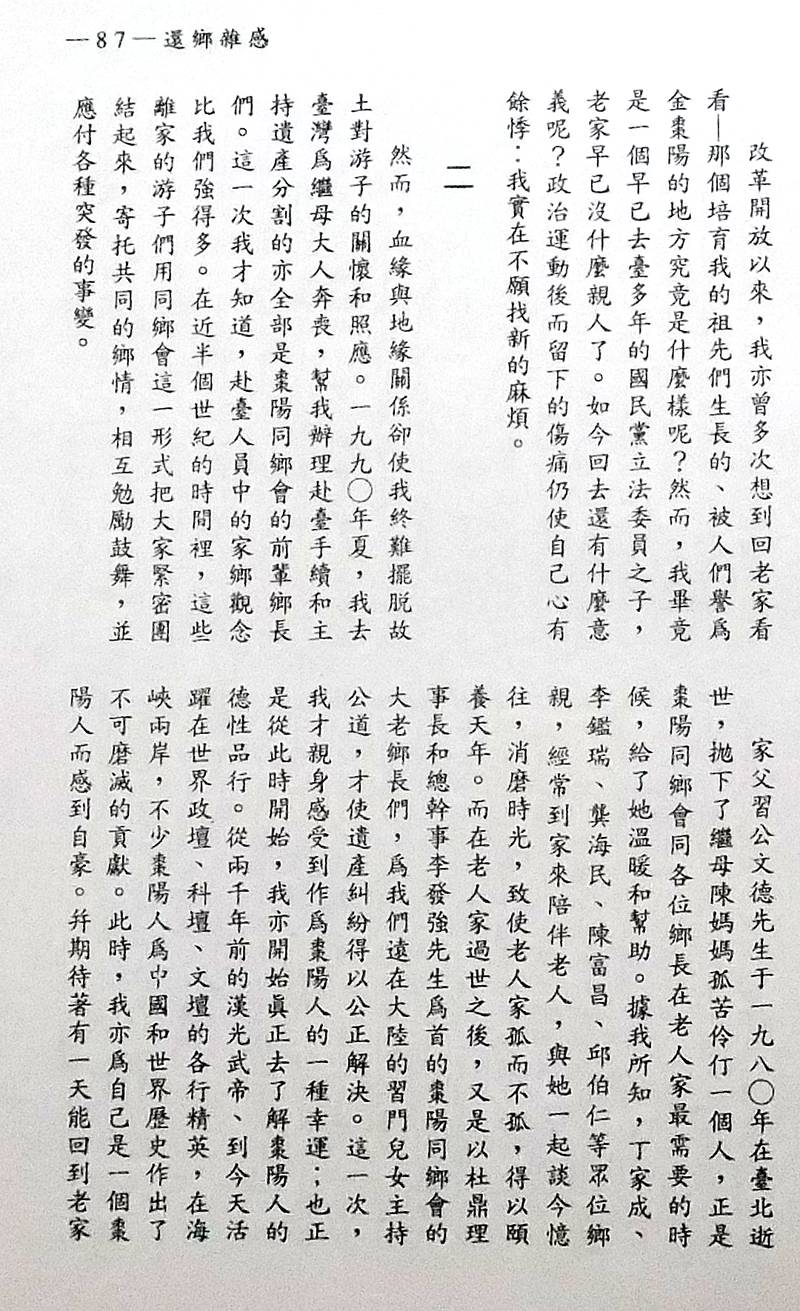 —87—還鄉雜感
改革開放以來，我亦曾多次想到回老家看
看—那個培育我的祖先們生長的、被人們譽爲
金棗陽的地方究竟是什麼樣呢？然而，我畢竟
是一個早已去臺多年的國民黨立法委員之子，
老家早已沒什麼親人了。如今回去還有什麼意
義呢？政治運動後而留下的傷痛仍使自己心有
餘悸：我實在不願找新的麻煩。
二
然而，血緣與地緣關係卻使我終難擺脫故
土對游子的關懷和照應。一九九〇年夏，我去
臺灣爲繼母大人奔喪，幫我辦理赴臺手續和主
持遺產分割的亦全部是棗陽同鄉會的前輩鄉長
們。這一次我才知道，赴臺人員中的家鄉觀念
比我們強得多。在近半個世紀的時間裡，這些
離家的游子們用同鄉會這一形式把大家緊密團
結起來，寄托共同的鄉情，相互勉勵鼓舞，並
應付各種突發的事變。
家父習公文德先生于一九八〇年在臺北逝
世，拋下了繼母陳媽媽孤苦伶仃一個人，正是
棗陽同鄉會同各位鄉長在老人家最需要的時
候，給了她溫暖和幫助。據我所知，丁家成、
李鑑瑞、龔海民、陳富昌、邱伯仁等眾位鄉
親，經常到家來陪伴老人，與她一起談今憶
往，消磨時光，致使老人家孤而不孤，得以頤
養天年。而在老人家過世之後，又是以杜鼎理
事長和總幹事李發強先生爲首的棗陽同鄉會的
大老鄉長們，爲我們遠在大陸的習門兒女主持
公道，才使遺產糾紛得以公正解決。這一次，
我才親身感受到作爲棗陽人的一種幸運；也正
是從此時開始，我亦開始眞正去了解棗陽人的
德性品行。從兩千年前的漢光武帝、到今天活
躍在世界政壇、科壇、文壇的各行精英，在海
峽兩岸，不少棗陽人爲中國和世界歷史作出了
不可磨滅的貢獻。此時，我亦爲自己是一個棗
陽人而感到自豪。幷期待著有一天能回到老家